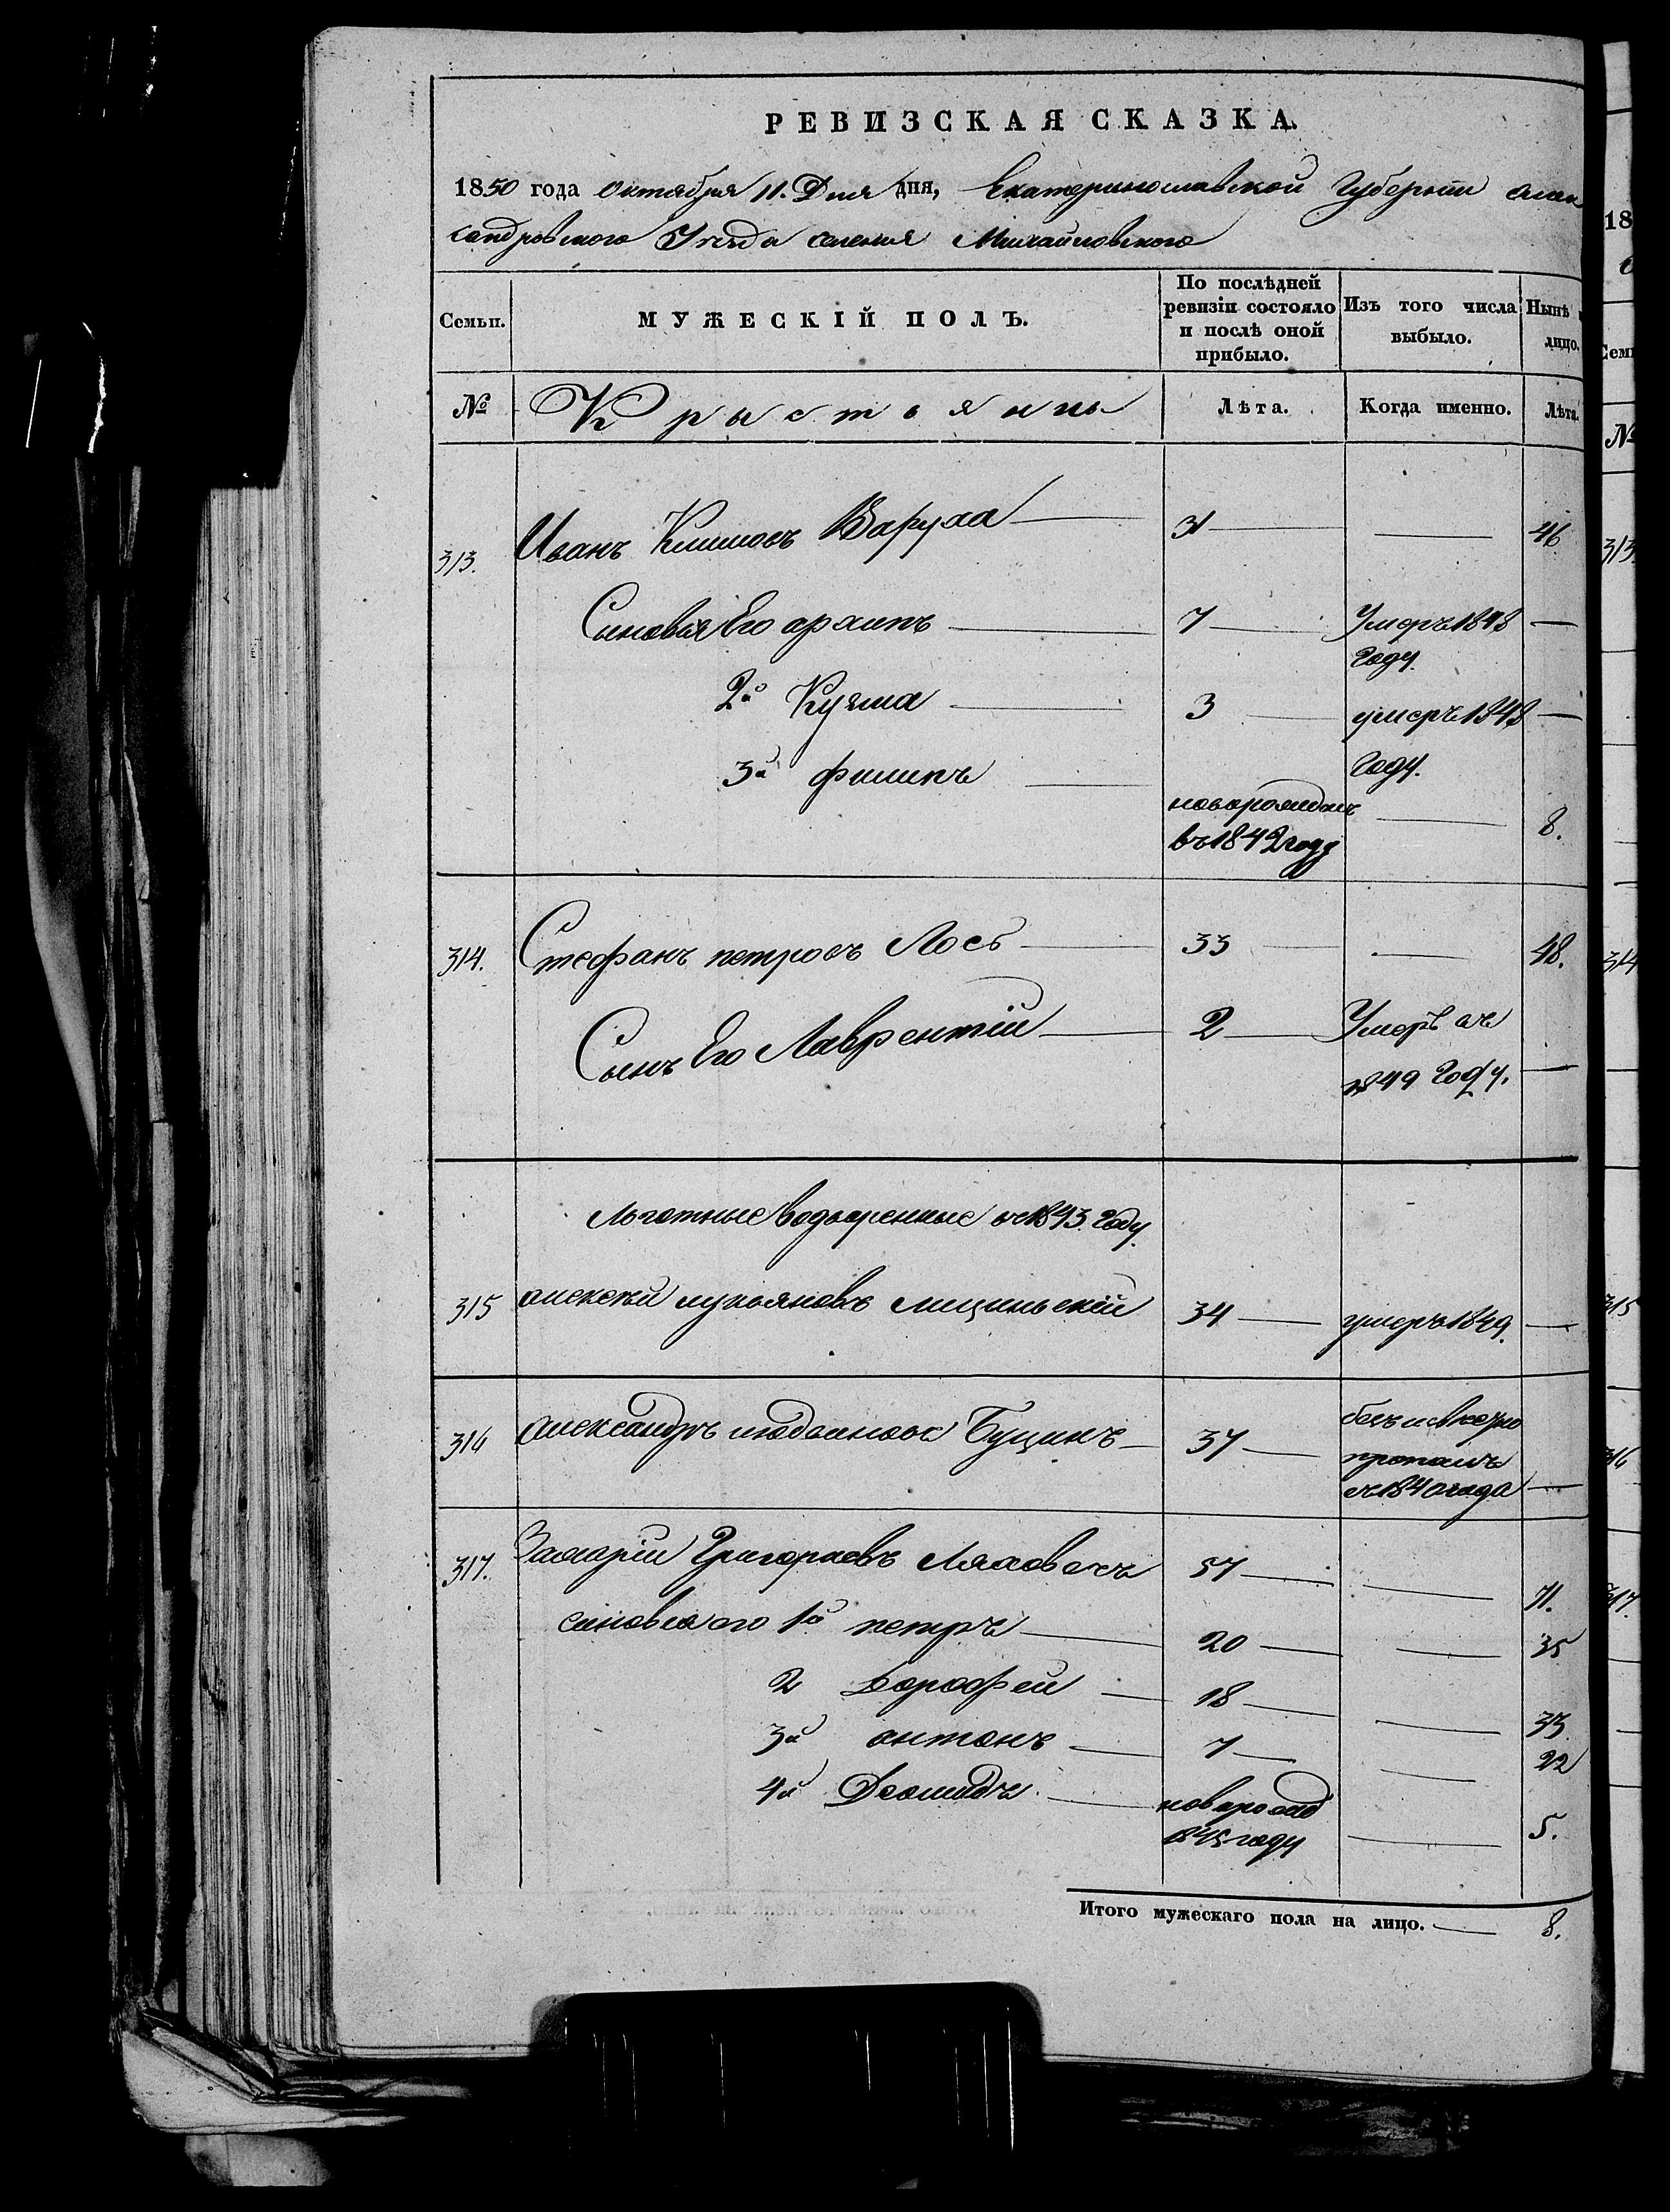 РЕВИЗСКАЯ СКАЗКА.
1850 года Октября 11. Дня дня, Екатеринославской Губернии алек
сандровского Уезда селения Михайловского
Семьи.
МУЖЕСКІЙ ПОЛЪ.
По послѣдней
ревизіи состояло
и послѣ оной
прибыло.
Изъ того числа
выбыло.
Нынѣ
лицо.
№
Крыстьяны
Лѣта.
Когда именно.
Лѣта.
313. Иванъ Климовъ Варуха 31 46
Сыновья Его архипъ 7 Умеръ 1848
Году.
2й Кузма 3 умеръ 1848
Году.
3й филипъ
новорожданъ
въ 1842 году 8.
314. Стефанъ петровъ Лось 33 48.
Сынъ Его Лаврентій 2 Умеръ въ
1849 Году.
Льготные водворенные въ 1843. Году.
315 алексей лукьяновъ лищинскій 34 умеръ 1849.
316 александръ Бущикъ 37
пропалъ
съ 1840 года
317. Захарій Григорьевъ Ляховецъ 57 71.
синовья его 1й петръ 20 35
2 Дорофей 18 33
3й антонъ 7 22
4й Деомидъ новорожд
1845 году 5.
Итого мужескаго пола на лицо. 8.
18
Семь
№
313
314
315
316
317.